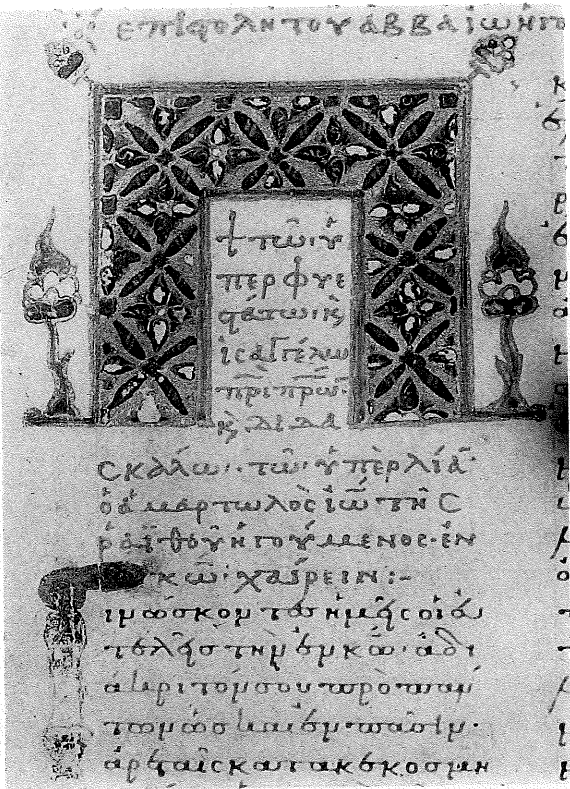 ἐπιστολὴ τοῦ ἀββᾶ ἰω ἡγο
+ τῶ ὑ
περφυε
στάτω κ
ἰσαγγέλω
πρὶ πρων
κ διδα
σκάλω· τῶ ὑπὲρ λίαν
ὁ ἁμαρτωλὸς ἰω τῆς
ῥαϊθοῦ ἡγούμενος· ἐν
κω χαίρειν:–
Γινώσκοντες ἡμεῖς οἱ εὐ
τελεῖς τὴν ἐν κω ἀδι
άκριτόν σου πρὸ πάν
των ὡς καὶ ἐν πᾶσιν·
ἀρεταῖς κατακεκοσμη